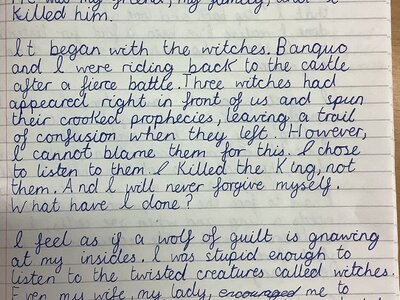 He was my friend, my family, and I
killed him.
It began with the witches. Banquo
and I were riding back to the castle
after a fierce battle. Three witches had
appeared right in front of us and spun
their crooked prophecies, leaving a trail
of confusion when they left. However,
I cannot blame them for this. I chose
to listen to them. I killed the King, not
them. And I will never forgive myself.
What have I done?
I feel as if a wolf of guilt is gnawing
at my insides. I was stupid enough to
listen to the twisted creatures called witches.
Even my wife, my lady, encouraged me to